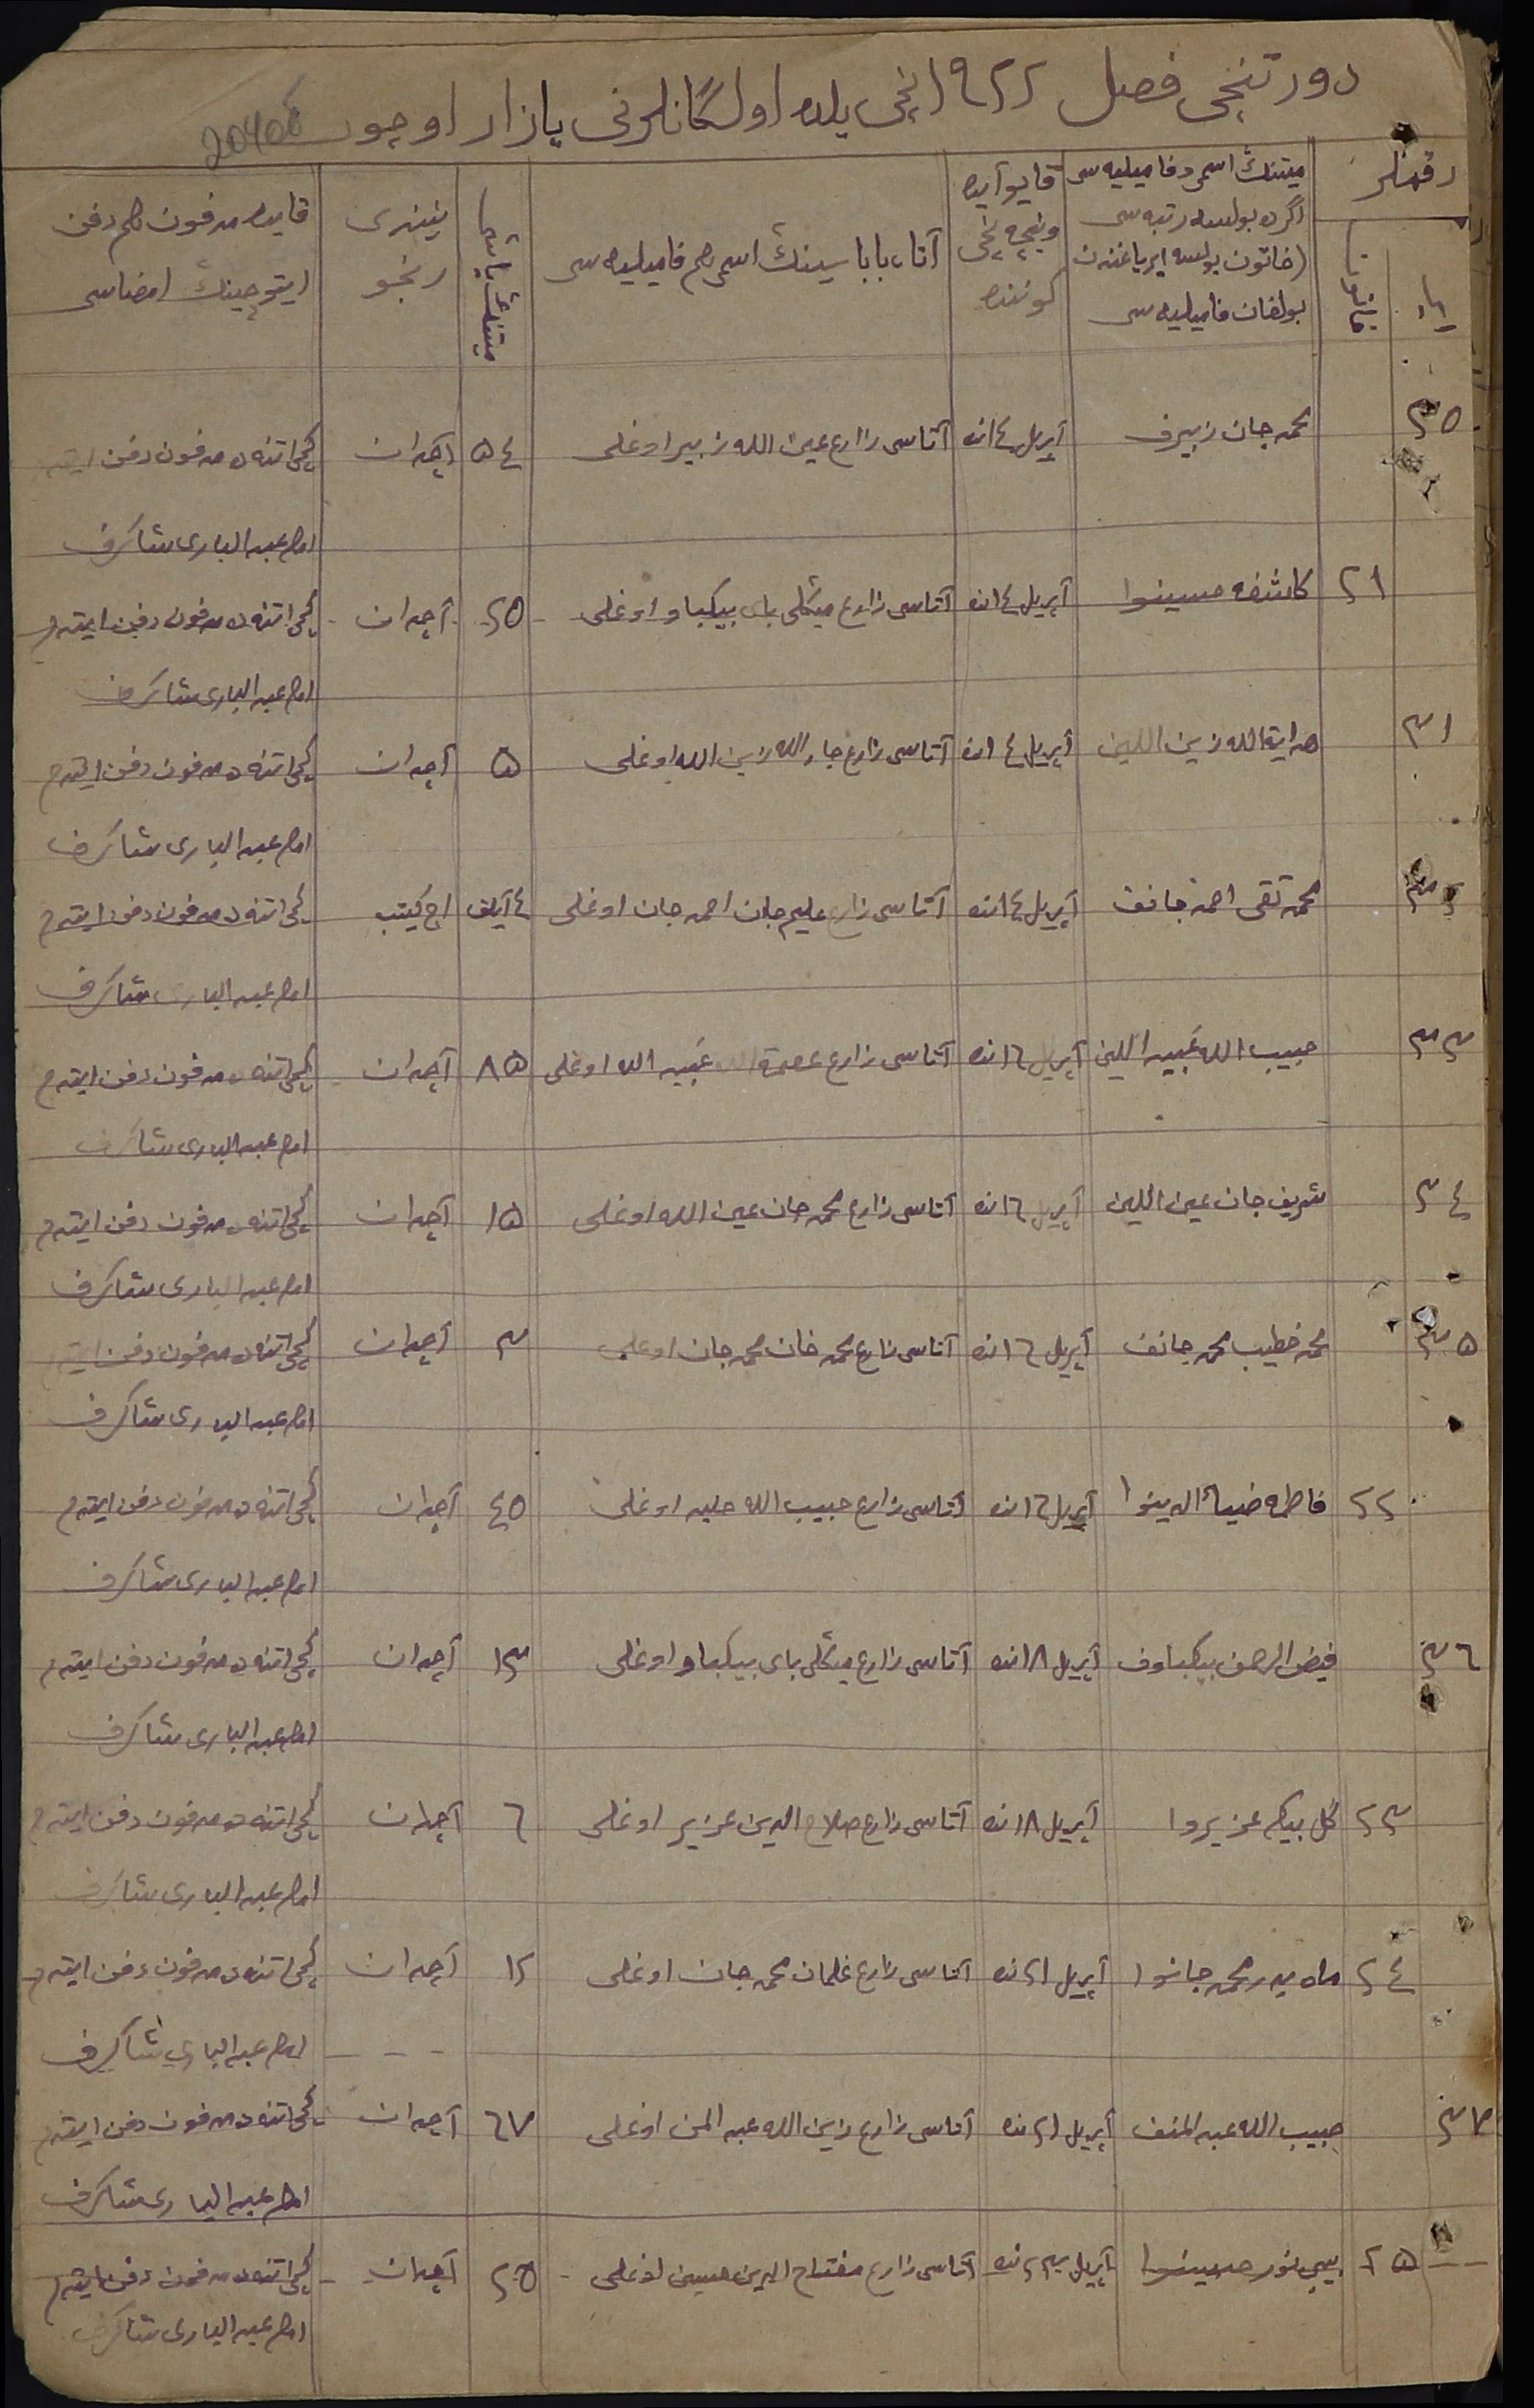 دورتنچی فصل ١٩٢٢ انچی یلده اولگانلرنی یازار اوچون
رقملر
میتنڭ اسمی و فامیلیه سی
اگرده بولسه رتبه سی
(خاتون بولسه ایر یاغندن
بولغان فامیلیه سی
قایو آیده
ونیچه نچی
کوننده
آتا، باباسینڭ اسمی هم فامیلیه سی
میتنڭ یاشی
نیندی
رنجو
قایده مدفون هم دفن
ایتوچینڭ امضاسی
٣٠ محمد جان زبیرف آپریل ١٤ نده آتاسی زارع عین الله زبیر اوغلی ٥٤ آچدان کچی اتنه ده مدفون دفن ایتدم
امام عبد الباری شاکرف
٢١ کاشفه حسینوا آپریل ١٤ نده آتاسی زارع مینگلی بای بیکباو اوغلی ٢٥ آچدان کچی اتنه ده مدفون دفن ایتدم
امام عبد الباری شاکرف
٣١ هدایة الله زین اللین آپریل ١٤ نده آتاسی زارع جار الله زین الله اوغلی ٥ آچدان کچی اتنه ده مدفون دفن ایتدم
امام عبد الباری شاکرف
٣٢ محمد تقی احمد جانف آپریل ١٤ نده آتاسی زارع علیم جان احمد جان اوغلی ٤ آیلق اچ کیتب کچی اتنه ده مدفون دفن ایتدم
امام عبد الباری شاکرف
٣٣ حبیب الله عبید اللین آپریل ١٦ نده آتاسی زارع عصمة الله عبید الله اوغلی ٨٥ آچدان کچی اتنه ده مدفون دفن ایتدم
امام عبد الباری شاکرف
٣٤ شریف جان عین اللین آپریل ١٦ نده آتاسی زارع محمد جان عین الله اوغلی ١٥ آچدان کچی اتنه ده مدفون دفن ایتدم
امام عبد الباری شاکرف
٣٥ محمد خطیب محمد جانف آپریل ١٦ نده آتاسی زارع محمد خان محمد جان اوغلی ٣ آچدان کچی اتنه ده مدفون دفن ایتدم
امام عبد الباری شاکرف
٢٢ فاطمه ضیاء الدینوا آپریل ١٦ نده آتاسی زارع حبیب الله اوغلی ٤٥ آچدان کچی اتنه ده مدفون دفن ایتدم
امام عبد الباری شاکرف
٣٦ فیض الرحمن بیکباوف آپریل ١٨ نده آتاسی زارع مینگلی بای بیکباو اوغلی ١٣ آچدان کچی اتنه ده مدفون دفن ایتدم
امام عبد الباری شاکرف
٢٣ گل بیکه عزیزوا آپریل ١٨ نده آتاسی زارع صلاح الدین عزیز اوغلی ٦ آچدان کچی اتنه ده مدفون دفن ایتدم
امام عبد الباری شاکرف
٢٤ ماه بدر محمد جانوا آپریل ٢١ نده آتاسی زارع غلمان محمد جان اوغلی ١٢ آچدان کچی اتنه ده مدفون دفن ایتدم
امام عبد الباری شاکرف
٣٧ حبیب الله عبد المنف آپریل ٢١ نده آتاسی زارع زین الله عبد المن اوغلی ٦٧ آچدان کچی اتنه ده مدفون دفن ایتدم
امام عبد الباری شاکرف
٢٥ بیبی نور حسینوا آپریل ٢٣ نده آتاسی زارع مفتاح الدین حسین اوغلی ٢٥ آچدان کچی اتنه ده مدفون دفن ایتدم
امام عبد الباری شاکرف